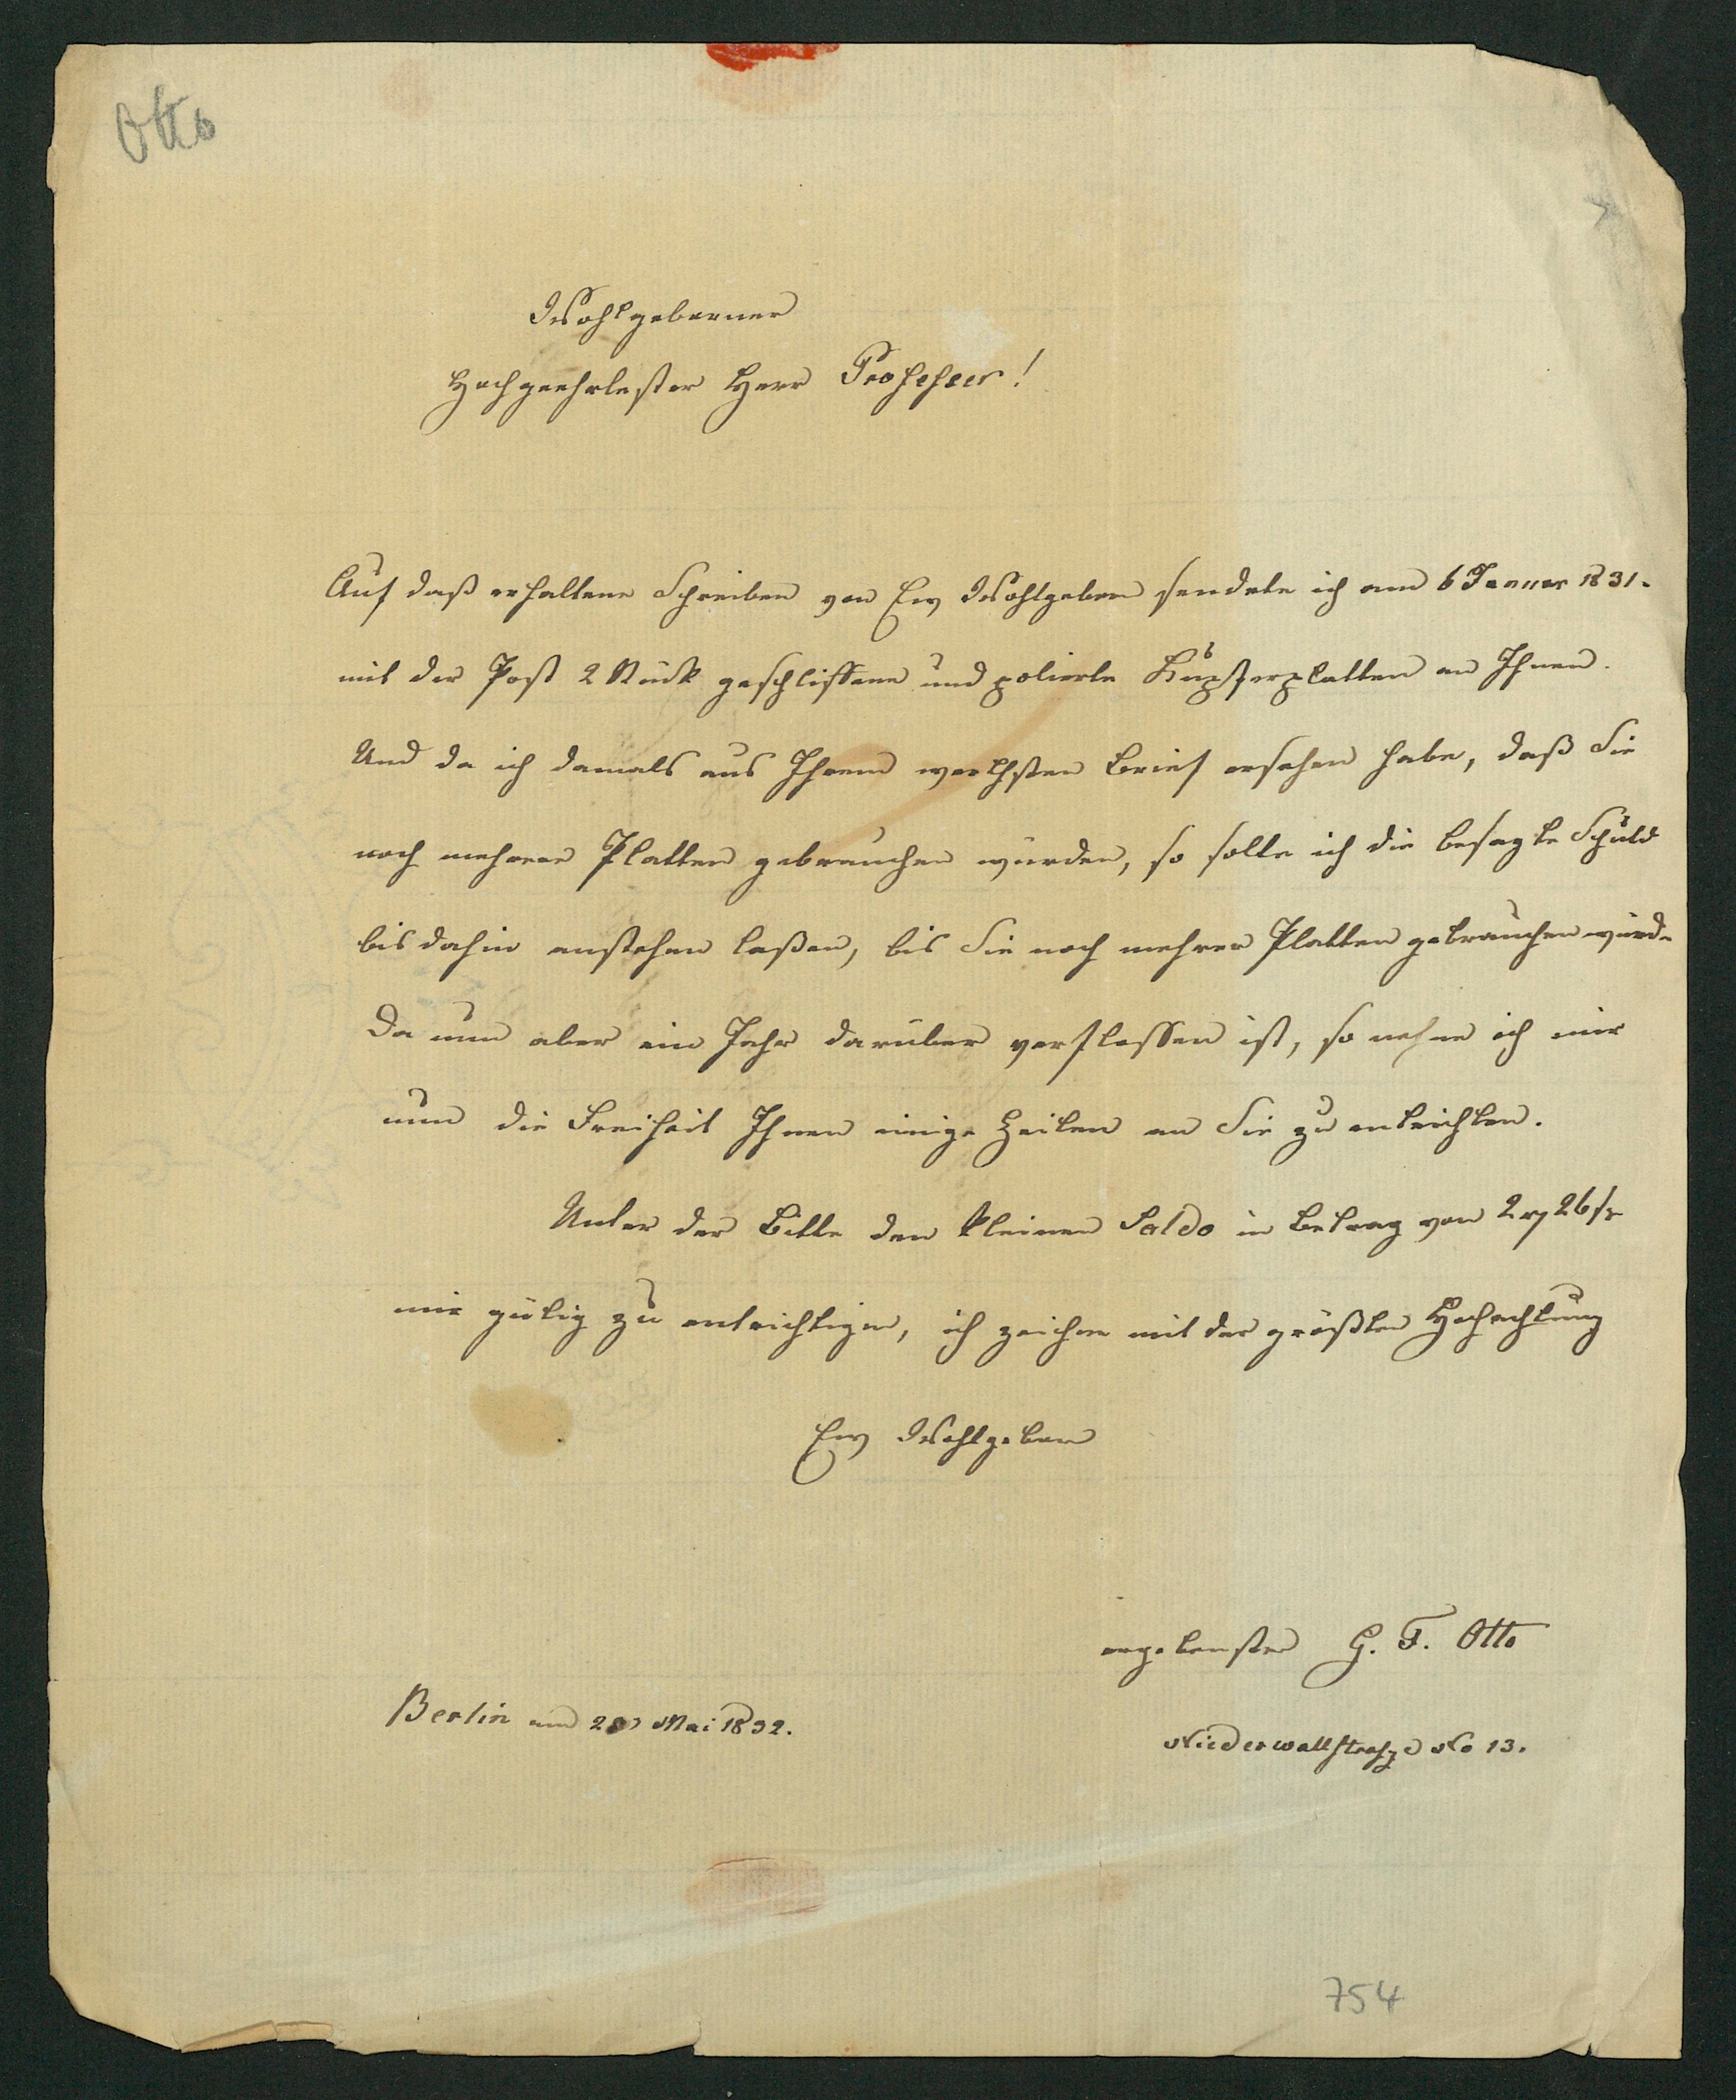 Otto
Wohlgeborner
Hochgeehrtester Herr Professer!
Auf daß erhaltene Schreiben von Ew Wohlgeborn sendete ich am 6 Januar 1831.
mit der Post 2 Stück geschliffene und polierte Kupferplatten an Ihnen.
Und da ich damals aus Ihrem werthsten Brief ersehen habe, daß Sie
noch mehrere Platten gebrauchen würden, so sollte ich die besagte Schuld
bis dahin anstehen laßen, bis Sie noch mehrer Platten gebrauchen würde
Da nun aber ein Jahr darüber verflossen ist, so nehme ich mir
nun die Freiheit Ihnen einige Zeilen an Sie zu entrichten.
Unter der Bitte den kleinen Saldo in Betrag von 2 rthlr 26 sgr
mir gütig zu entrichtigen, ich zeichne mit der größten Hochachtung
Ew Wohlgeborn
ergebenster G. F. Otto
Berlin am Mai 1832.
Niederwallstraße No 13.
754